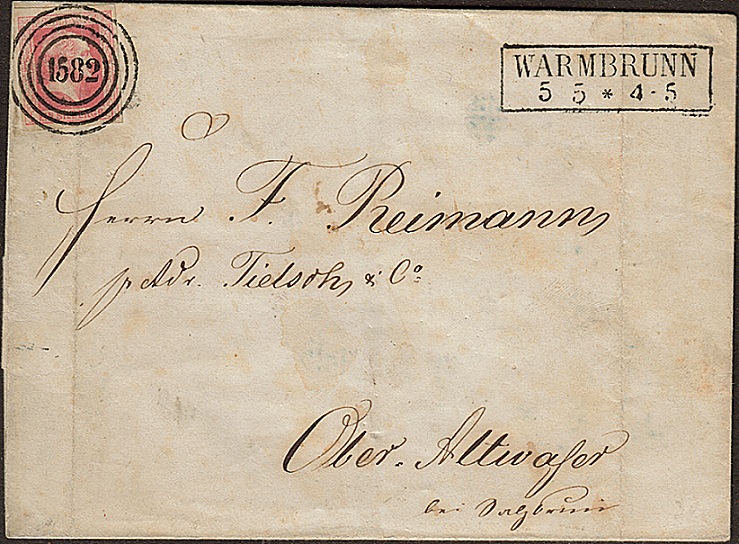 1582
WARMBRUNN
5 5 * 4-5
Herrn F. Reimann
p Adr. Tielsch & Co
Ober-Altwaſser
bei Salzbrunn